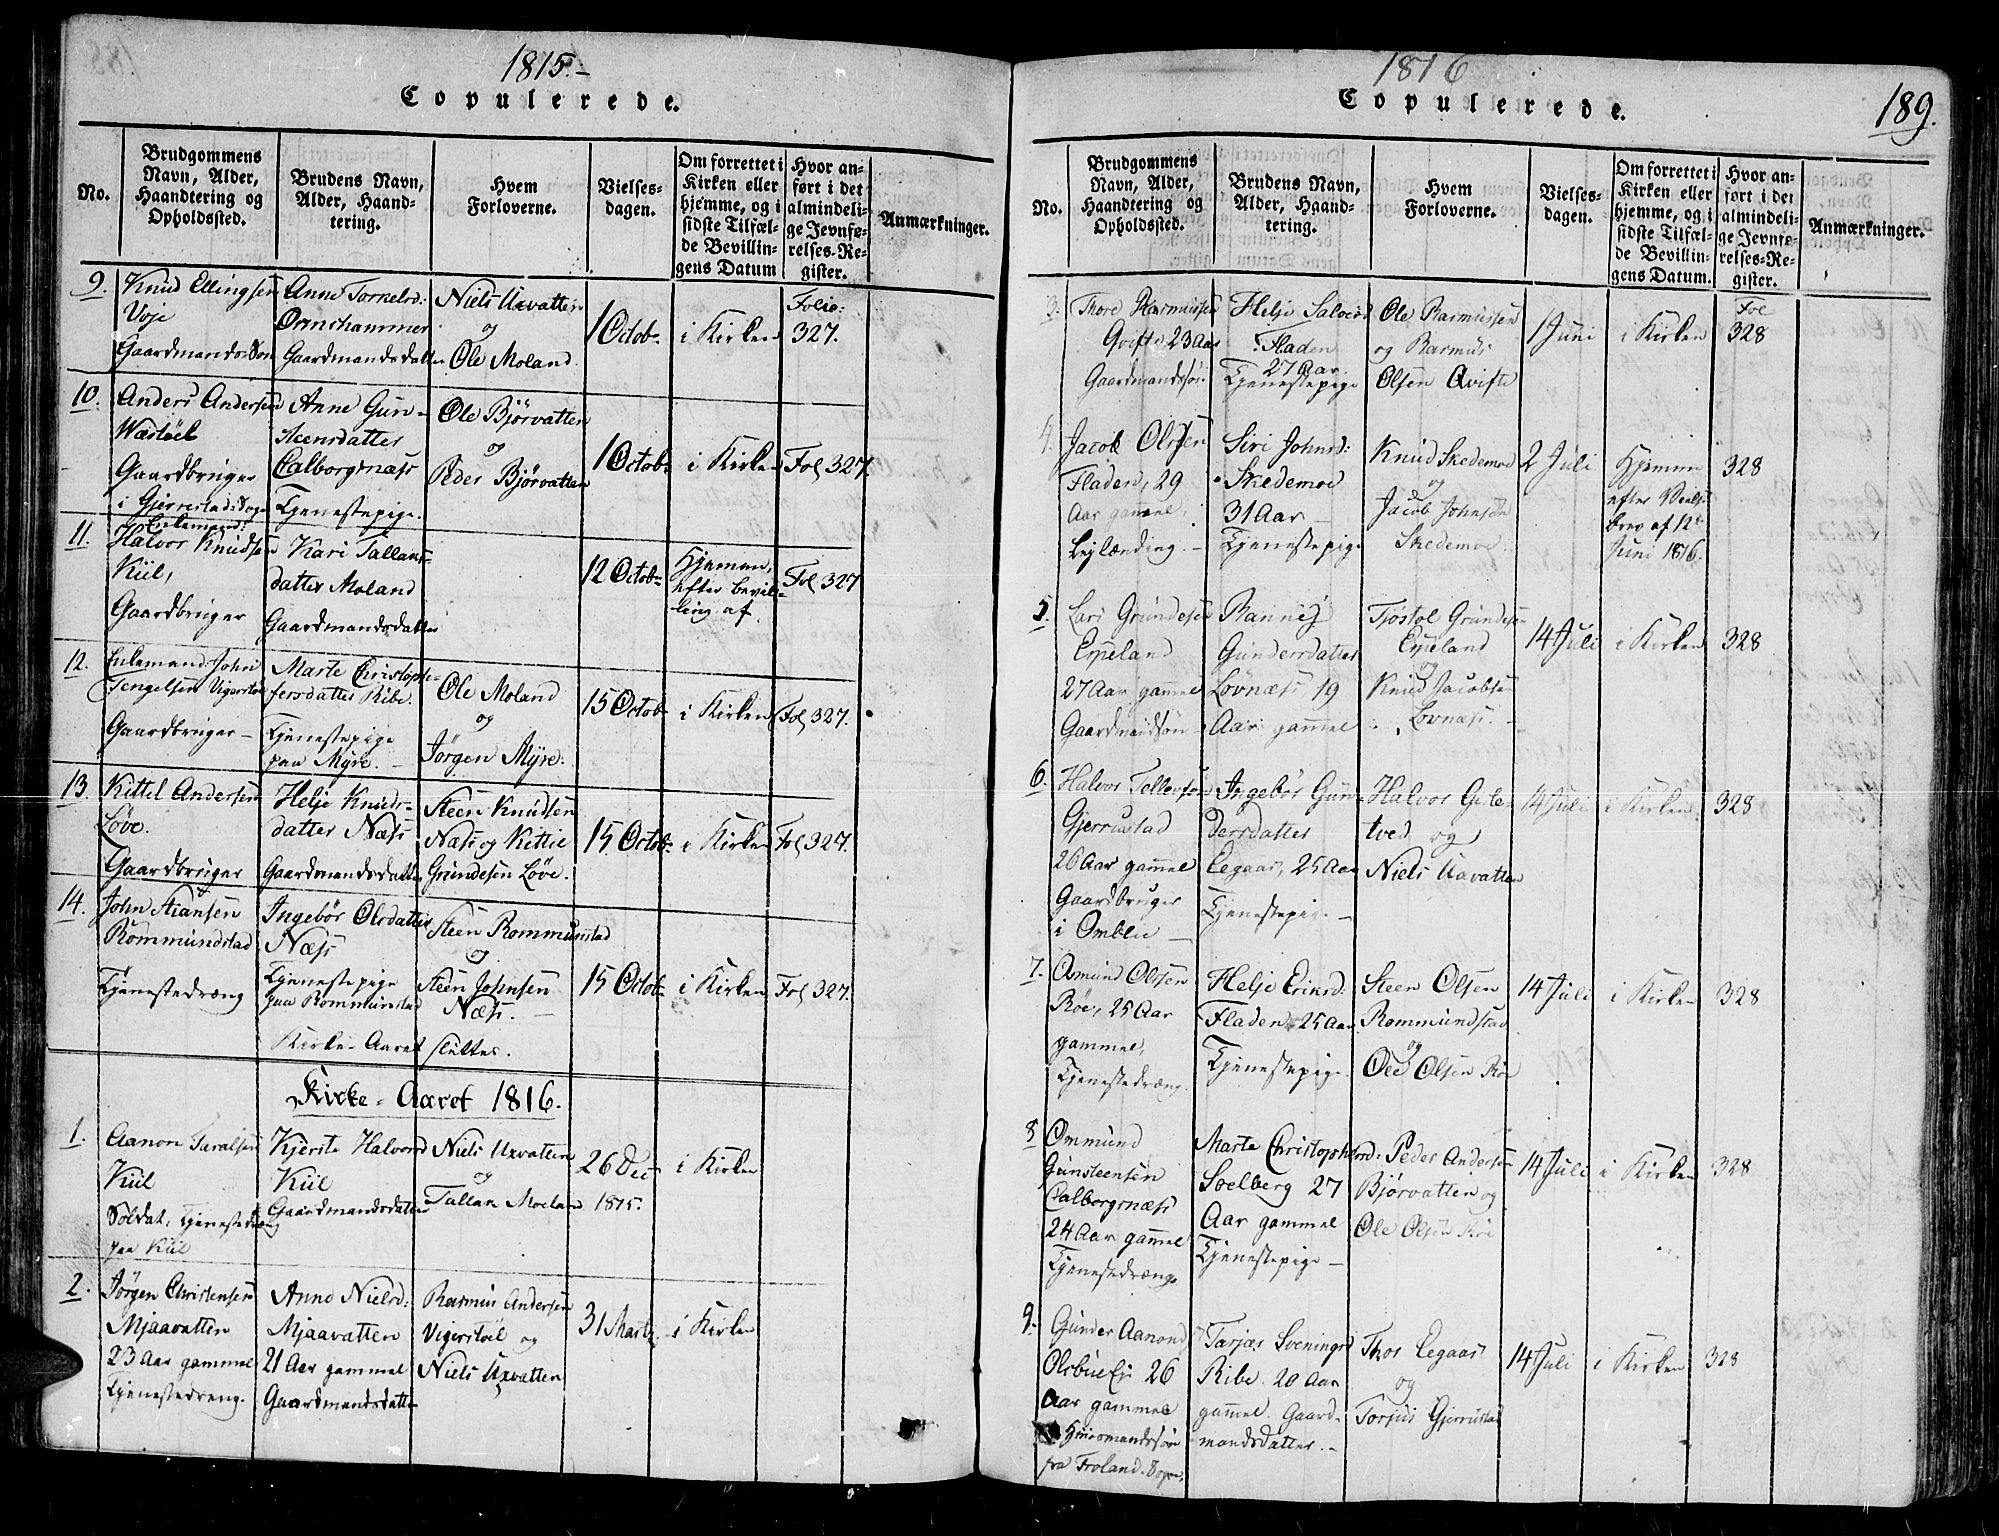 1815.-
Copulerede.
No.
Brudgommens
Navn, Alder,
Haandtering og
Opholdssted.
Brudens Navn,
Alder, Haand-
tering.
Hvem
Forloverne.
Vielses-
dagen.
Om forrettet i
Kirken eller
hjemme, og i
sidste Tilfæl-
de Bevillin-
gens Datum
Hvor an-
ført i det
almindeli-
ge Jevnfø-
relses-Re-
gister.
Anmærkninger.
9.
Knud Ellingsen
Voje
Gaardmands Søn
Anne Torkelsd:
Ornshammer
Gaardmandsdatter
Niels Uxvatten
og
Ole Moland.
1 Octob:
i Kirken
Folio:
327.
10.
Anders Andersen
Westöel
Gaardbruger
i Gjerrestad Sogn
Anne Gun-
steensdatter
Calborgsnæss
Tjenestepige.
Ole Bjørvatten
og
Peder Bjørvatten
1 Octob:
i Kirken
Fol 327.
11.
Enkemand:
Halvor Knudsen
Kiil,
Gaardbruger
Kari Tallans-
datter Moland
Gaardmandsdatter
12 Octob:
Hjemme,
efter Bevil-
ling af
Fol 327
12.
Enkemand John
Tengelsen Vigerstöl
Gaardbruger -
Marte Christoph-
fersdatter Ribe.
Tjenestepige
paa Myre. -
Ole Moland
og
Jörgen Myre.
15 Octob:
i Kirken
Fol 327.
13.
Kittel Andersen
Löve.
Gaardbruger
Helje Knuds-
datter Næss
Gaardmandsdatter
Steen Knudsen
Næss og Kittil
Grundesen Löve.
15 Octob:
i Kirken
Fol 327.
14.
John Aiansen
Rommundstad
Tjenestedræng
Ingebör Olsdatter
Næss
Tjenestepige
paa Rommunstad
Steen Rommunstad
og
Steen Johnsen
Næss. -
15 Octob:
i Kirken
Fol 327.
Kirke-Aaret slutter.
Kirke-Aaret 1816.
1.
Aanon Taralsen
Kiil
Soldat, Tjenestedreng
paa Kiil
Kjerste Halvorsd
Kiil
Gaardmandsdatter
Niels Uxvatten
og
Tallak Moeland
26 Dec
1815.
i Kirken
2.
Jörgen Christensen
Mjaavatten
23 Aar gammel
Tjenestedreng.
Anne Nielsd:
Mjaavatten
21 Aar gammel
Gaardmandsdatter
Rasmus Andersen
Vigerstöel og
Niels Uxvatten
31 Martz.
i Kirken
1816
Copulerede.
189.
No.
Brudgommens
Navn, Alder,
Haandtering og
Opholdssted.
Brudens Navn,
Alder, Haand-
tering.
Hvem
Forloverne.
Vielses-
dagen.
Om forrettet i
Kirken eller
hjemme, og i
sidste Tilfæl-
de Bevillin-
gens Datum.
Hvor an-
ført i det
almindeli-
ge Jevnfø-
relses-Re-
gister.
Anmærkninger.
3.
Thore Rasmussen
Qvifte 23 Aar
Gaardmandssön
Helje Salvesd
Fladen
27 Aar.
Tjenestepige
Ole Rasmussen
og Rasmus
Olsen Qvifte
1 Juni
i Kirken
Fol
328
4.
Jacob Olsen
Fladen, 29
Aar gammel,
Lejlænding. -
Siri Johnsd:
Skedemoe
31 Aar -
Tjenestepige
Knud Skedemoe
og
Jacob Johnsön
Skedemoe.
2 Juli
Hjemme
efter Vielse
brev af 12te
Juni 1816.
328
5.
Lars Grundesen
Erpeland
27 Aar gammel
Gaardmandsön
Rannej
Gundersdatter
Lövnæss 19
Aar gammel
Tjöstol Grundesen
Erpeland
og
Knud Jacobsen
Lovnæss. -
14 Juli
i Kirken
328
6.
Halvor Tellevsen
Gjerrustad
26 Aar gammel
Gaardbruger
i Omblie -
Ingebör Gun-
dersdatter
Eegaas, 25 Aar
Tjenestepige -
Halvor Gile-
tved og
Niels Uxvatten
14 Juli
i Kirken
328
7.
Osmund Olsen
Röe, 25 Aar
gammel,
Tjenestedræng.
Helje Eriksd:
Fladen 25 Aar
Tjenestepige.
Steen Olsen
Rommundstad
og
Ole Olsen Röe
14 Juli
i Kirken
328
8
Ommund
Gunsteensen
Calborgsnæss
24 Aar gammel
Tjenestedræng
Marte Christophersd:
Soelberg 27
Aar gammel
Tjenestepige -
Peder Andersen
Bjørvatten og
Ole Olsen Röe
14 Juli
i Kirken
328
9.
Gunder Aanond
Olsbue Ej 26
Aar gammel
Huusmandssön
fra Froland Sogn.
Tarjæs Sveningsd
Ribe. 20 Aar
gammel. Gaard-
mandsdatter. -
Thor Eegaas
og
Torjus Gjerrustad
14 Juli
i Kirken
328